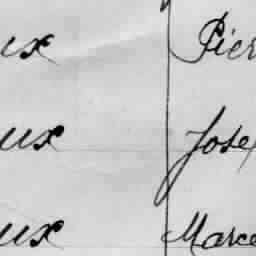 ux Pier
ux Jose
ux Marce